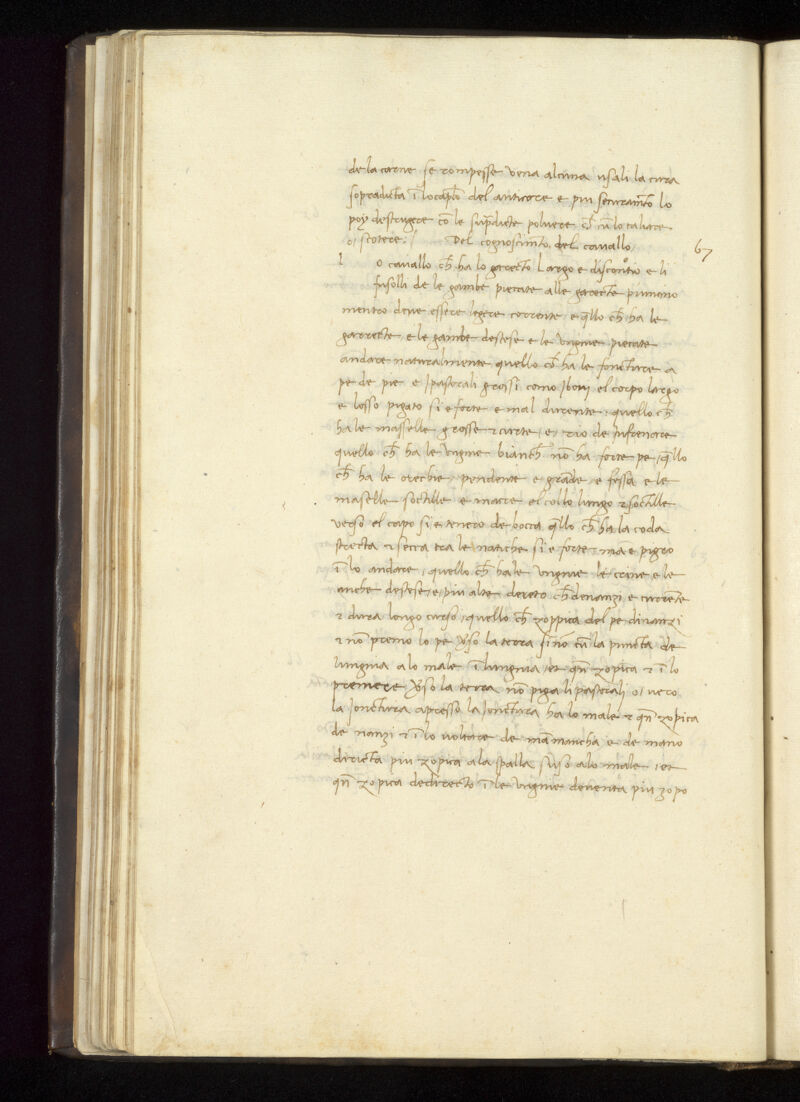 de la carne se rompesse vena alcuna usali la cura
sopradicta ī lo capło del anticore e piu securamēto lo
poy destrugere cō le sup̄dicte polvere ch̄ nō lo taliare
o/ scotere:/ Del cognoscimēto del cavallo/ 67
l o cavallo ch̄ ha lo garecto largo e discontio e li
fusolli de le gambe piecate alle garecte
mentro deve essere legere corrente / e q̄llo ch̄ ha le
garrecte / e le gambe destese e le ungnie piecate
andare naturalmente quello ch̄ ha le foncture a
pe de pie e / pastorali grossi como / bovi el corpo largo
e losso pigato si e forte e mal durente / quello ch̄
ha le masselle grosse & curte / e / rio de infrenare
quello ch̄ ha le ungnie bianch̄ nō ha forte pe / q̄llo
ch̄ ha le orechie / pendente e grāde / e fessa e le
maselle soctille e macre el collo lungo & soctille
verso el capo si e tenero de bocca q̄llo ch̄ ha la coda
strecta & serra tra le natiche si e forte ma e pigro
ī lo andare / quello ch̄ ha le ungnie le crine e le
anche destese / e / piu alte dereto ch̄ denanzi e currēte
& dura longo curso / quello ch̄ zoppica del pe dinanzi
& nō premo lo pe v̄so la terra si nō cū la puncta de
lungnia a lo male ī lungnia / et qn̄ zopica & ī lo
premere v̄so la terra nō piga li pastorali o/ vero
la jonctura apresso la jonctura ha lo male & qn̄ zopica
de nanzi & ī lo voltare de mā mancha e de mano
diricta piu zopica a la spalla suso a lo male / et
qn̄ zopica dedirecto ī le ungnie deventa piu zopo